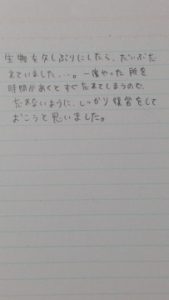 生物を久しぶりにしたら、だいぶ忘
れていました...。一度やった所を
時間があくとすぐ忘れてしまうので、
忘れないように、しっかり復習をして
おこうと思いました。